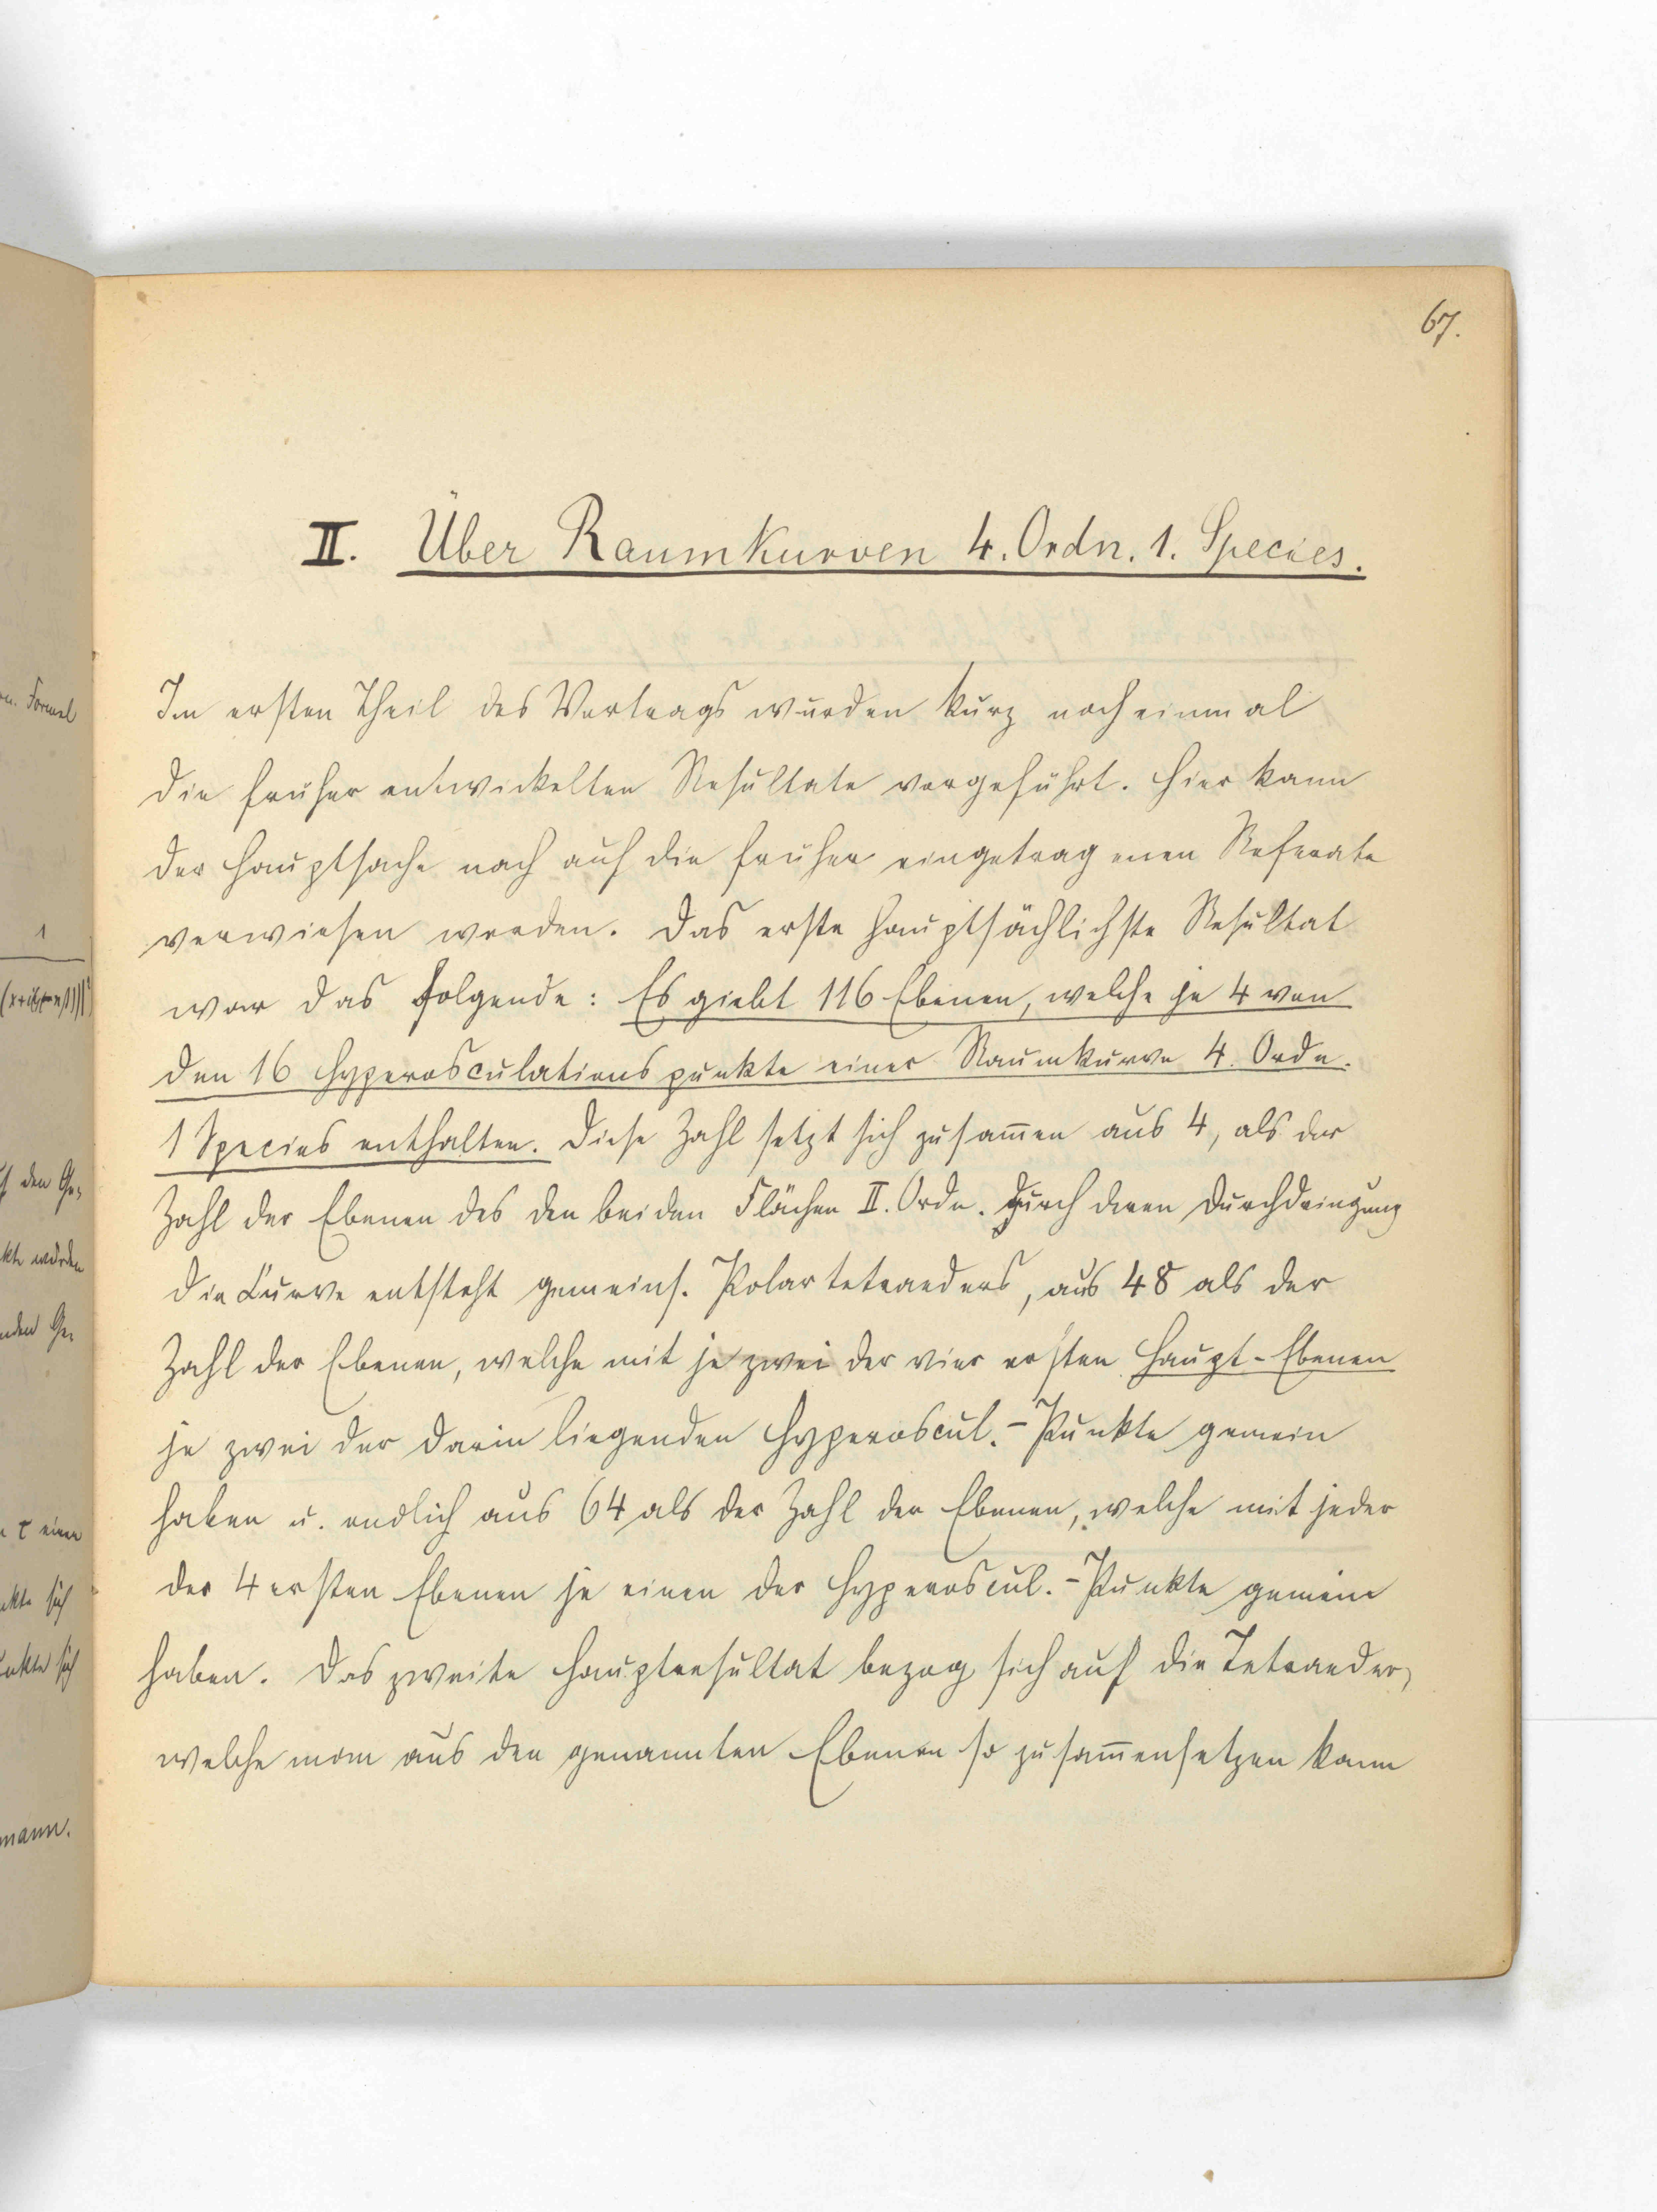 67.
II. Über Raumkurven 4. Ordn. 1. Species.
Im ersten Theil des Vortrags wurden kurz noch einmal
die früher entwickelten Resultate vorgeführt. Hier kann
der Hauptsache nach auf die früher eingetragenen Referate
verwiesen werden. Das erste hauptsächlichste Resultat
war das folgende: Es giebt 116 Ebenen, welche je 4 von
den 16 Hyperosculationspunkte einer Raumkurve 4. Ordn.
1 Species enthalten. Diese Zahl setzt sich zusam̄en aus 4, als der
Zahl der Ebenen des den beiden Flächen II. Ordn. durch deren Durchdringung
die Curve entsteht gemeins. Polartetraeders, aus 48 als der
Zahl der Ebenen, welche mit je zwei der vier ersten Haupt-Ebenen
je zwei der darin liegenden Hyperoscul.-Punkte gemein
haben u. endlich aus 64 als der Zahl der Ebenen, welche mit jeder
der 4 ersten Ebenen je einen der Hyperoscul.-Punkte gemein
haben. Das zweite Hauptresultat bezog sich auf die Tetraeder,
welche man aus den genannten Ebenen so zusam̄ensetzen kann
n. Formel
1
f den Ge-
kte würden
nden Ge-
τ einen
nkte sich
unkte sich
mann.